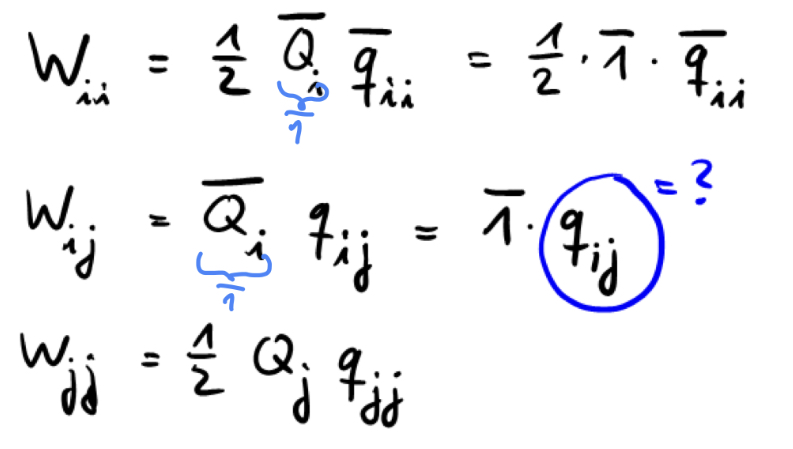 W_ii = 1/2 Q̄_i q̄_ii = 1/2 · 1̄ · q̄_ii
1̄
W_ij = Q̄_i q_ij = 1̄ · q_ij = ?
1̄
W_jj = 1/2 Q_j q_jj